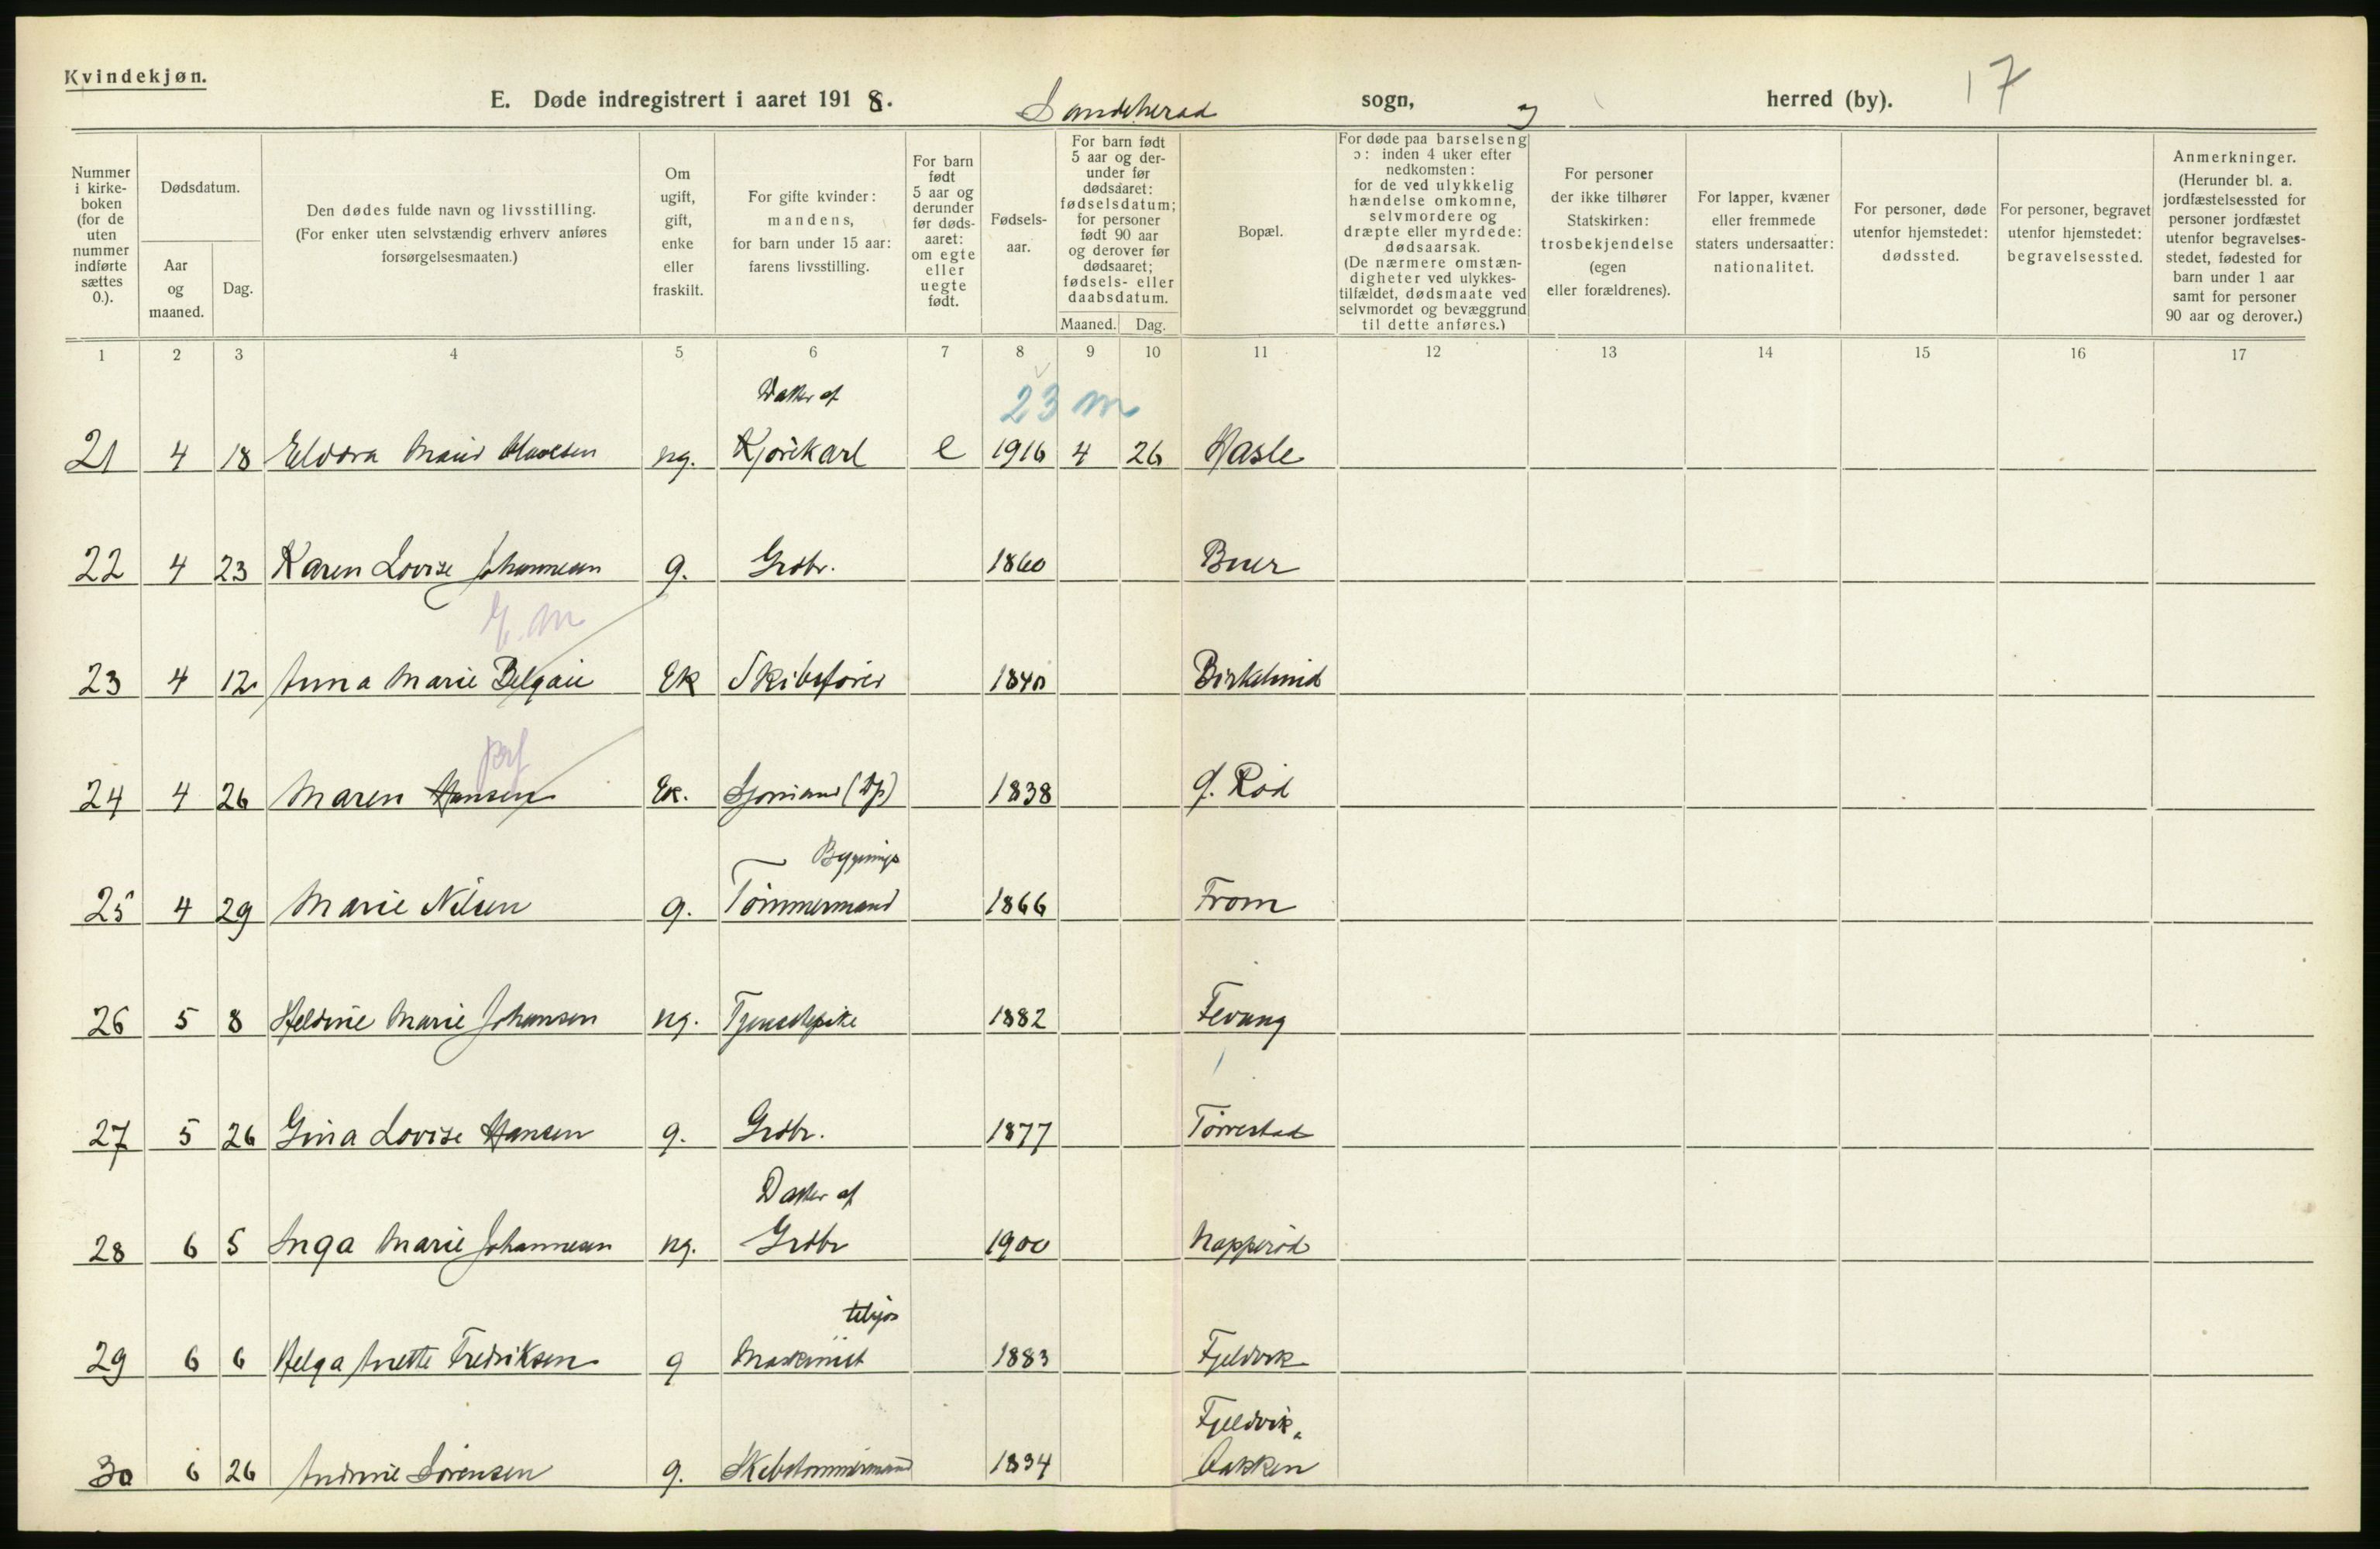 Kvindekjøn.
E. Døde indregistrert i aaret 1918. Sandeherad sogn, herred (by). 17
Nummer i kirke-boken (for de uten nummer indførte sættes 0.).
Dødsdatum.
Aar og maaned.
Dag.
Den dødes fulde navn og livsstilling. (For enker uten selvstændig erhverv anføres forsørgelsesmaaten.)
Om ugift, gift, enke eller fraskilt.
For gifte kvinder: mandens, for barn under 15 aar: farens livsstilling.
For barn født 5 aar og derunder før døds-aaret: om egte eller uegte født.
Fødsels-aar.
For barn født 5 aar og der-under før dødsaaret: fødselsdatum; for personer født 90 aar og derover før dødsaaret; fødsels- eller daabsdatum.
Maaned. Dag.
Bopæl.
For døde paa barselseng ɔ: inden 4 uker efter nedkomsten: for de ved ulykkelig hændelse omkomne, selvmordere og dræpte eller myrdede: dødsaarsak. (De nærmere omstæn-digheter ved ulykkes-tilfældet, dødsmaate ved selvmordet og bevæggrund til dette anføres.)
For personer der ikke tilhører Statskirken: trosbekjendelse (egen eller forældrenes).
For lapper, kvæner eller fremmede staters undersaatter: nationalitet.
For personer, døde utenfor hjemstedet: dødssted.
For personer, begravet utenfor hjemstedet: begravelsessted.
Anmerkninger. (Herunder bl. a. jordfæstelsessted for personer jordfæstet utenfor begravelses-stedet, fødested for barn under 1 aar samt for personer 90 aar og derover.)
1 2 3 4 5 6 7 8 9 10 11 12 13 14 15 16 17
Datter af 23 m
21 4 18 Eldora Marie Olavesen ug. Kjørekarl e 1916 4 26 Hasle
22 4 23 Karen Lovise Johannesen g. Grdbr. 1860 Buer
E. m
23 4 12 Anna Marie Belgau Ek Skibsfører 1840
24 4 26 Maren Hansen Ek. Sjømand 1838 Rød
Bygnings
25 4 29 Marie Nilsen g. Tømmermand 1866 From
26 5 8 Heldine Marie Johansen ug. Tjenestepike 1882 Fevang
27 5 26 Gina Lovise Hansen g. Grdbr. 1877 Tørrestad
Datter af
28 6 5 Inga Marie Johannesen ug. Grdbr 1900 Napperød
tilsjøs
29 6 6 Helga Anette Fredriksen g Maskinist 1883 Fjeldvik
Fjeldvik
30 6 26 Andrine Sørensen g. Skibstømmermand 1834 Bakken